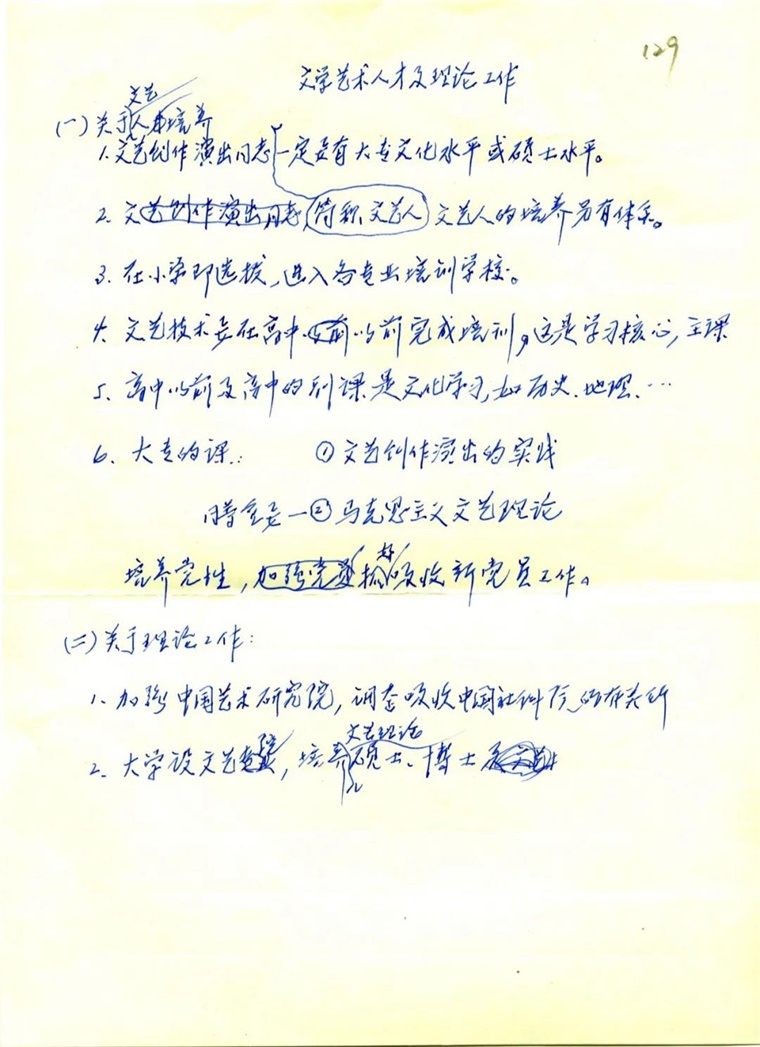 129
文学艺术人才及理论工作
(一)关于文艺人才培养
1. 文艺创作演出同志一定要有大专文化水平或硕士水平。
2. 文艺创作演出同志(简称文艺人)文艺人的培养另有体系。
3. 在小学即选拔,进入各专业培训学校。
4. 文艺技术要在高中以前以前完成培训,这是学习核心,主课
5. 高中以前及高中的副课是文化学习,如历史、地理、…
6. 大专的课: ①文艺创作演出的实践
②马克思主义文艺理论
培养党性,加强党 抓好吸收新党员工作。
(二)关于理论工作:
1. 加强中国艺术研究院,调查吸收中国社科院的有关所
2. 大学设文艺院,培养文艺理论硕士、博士